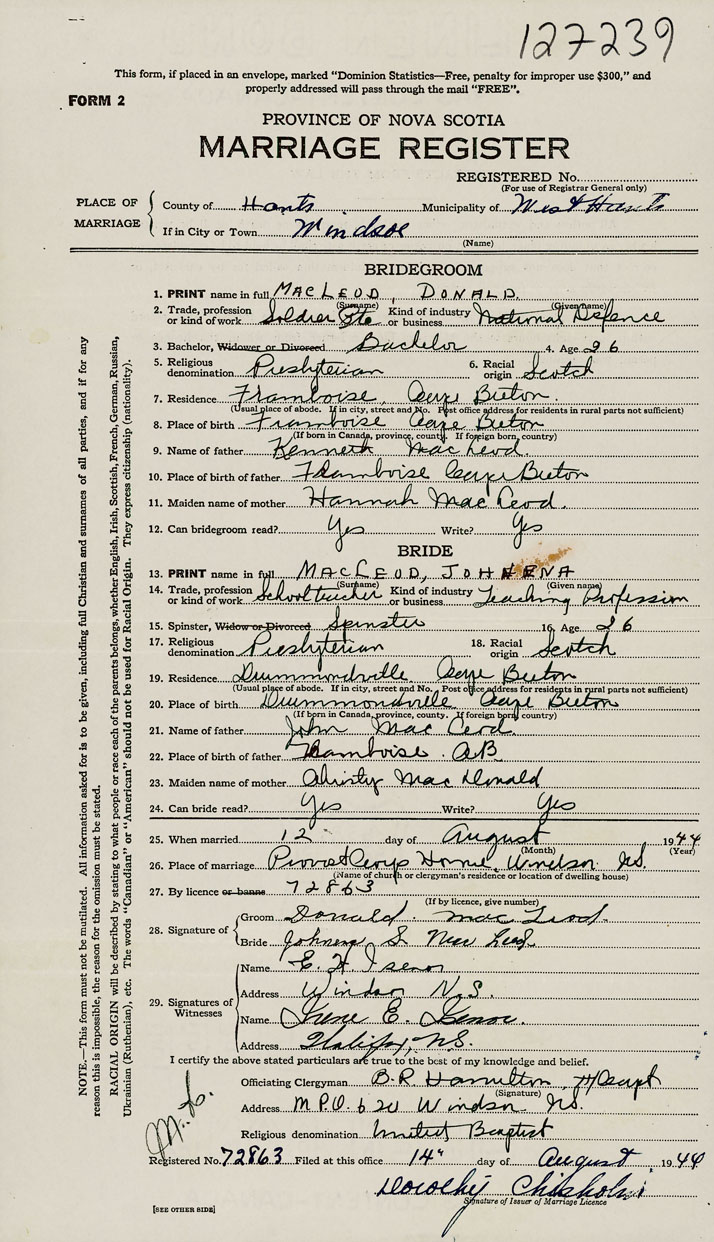 127239
This form, if placed in an envelope, marked “Dominion Statistics—Free, penalty for improper use $300,” and
properly addressed will pass through the mail “FREE”.
FORM 2
PROVINCE OF NOVA SCOTIA
MARRIAGE REGISTER
REGISTERED No.
(For use of Registrar General only)
PLACE OF MARRIAGE
County of Hants Municipality of West Hants
If in City or Town Windsor
(Name)
BRIDEGROOM
1. PRINT name in full MACLEOD, DONALD
(Surname) (Given name)
2. Trade, profession or kind of work Soldier Pte Kind of industry or business National Defence
3. Bachelor, Widower or Divorced Bachelor 4. Age 26
5. Religious denomination Presbyterian 6. Racial origin Scotch
7. Residence Framboise, Cape Breton
(Usual place of abode. If in city, street and No. Post office address for residents in rural parts not sufficient)
8. Place of birth Framboise Cape Breton
(If born in Canada, province, county. If foreign born, country)
9. Name of father Kenneth MacLeod
10. Place of birth of father Framboise Cape Breton
11. Maiden name of mother Hannah MacLeod
12. Can bridegroom read? Yes Write? Yes
BRIDE
13. PRINT name in full MACLEOD, JOHNENA
(Surname) (Given name)
14. Trade, profession or kind of work School teacher Kind of industry or business Teaching Profession
15. Spinster, Widow or Divorced Spinster 16. Age 26
17. Religious denomination Presbyterian 18. Racial origin Scotch
19. Residence Drummondville Cape Breton
(Usual place of abode. If in city, street and No. Post office address for residents in rural parts not sufficient)
20. Place of birth Drummondville Cape Breton
(If born in Canada, province, county. If foreign born, country)
21. Name of father John MacLeod
22. Place of birth of father Framboise CB
23. Maiden name of mother Christy MacDonald
24. Can bride read? Yes Write? Yes
25. When married 12 day of August 1944
(Month) (Year)
26. Place of marriage Provost Corps Home, Windsor NS.
(Name of church or clergyman's residence or location of dwelling house)
27. By licence or banns 72863
(If by licence, give number)
28. Signature of
Groom Donald MacLeod
Bride Johnena S. MacLeod
29. Signatures of Witnesses
Name E. H Isenor
Address Windsor N.S.
Name Irene E. Isenor
Address Halifax, N.S.
I certify the above stated particulars are true to the best of my knowledge and belief.
Officiating Clergyman B.R Hamilton, H/Capt
(Signature)
Address M.P.O. 620 Windsor NS.
Religious denomination United Baptist
Registered No. 72863 Filed at this office 14" day of August 1944
Dorothy Chisholm
Signature of Issuer of Marriage Licence
[SEE OTHER SIDE]
NOTE.—This form must not be mutilated. All information asked for is to be given, including full Christian and surnames of all parties, and if for any
reason this is impossible, the reason for the omission must be stated.
RACIAL ORIGIN will be described by stating to what people or race each of the parents belongs, whether English, Irish, Scottish, French, German, Russian,
Ukrainian (Ruthenian), etc. The words “Canadian” or “American” should not be used for Racial Origin. They express citizenship (nationality).